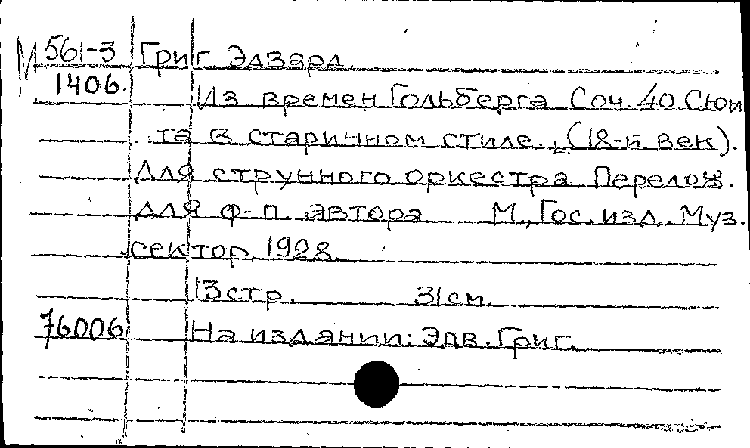 М 561-3 Григ Эдвард.
1406. Из времен Гольберга Соч. 40. Сюи
та в старинном стиле. (18-й век).
Для струнного оркестра Перелож.
для ф-п. автора М., Гос. изд. Муз.
сектор, 1928.
13 стр. 31 см.
76006 На издании: Эдв. Григ.